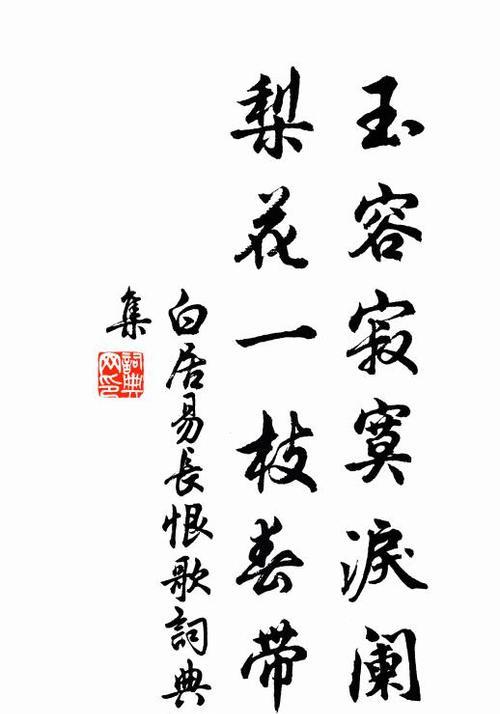 玉容寂寞淚阑
梨花一枝春带
白居易長恨歌詞典
集
詞典网印